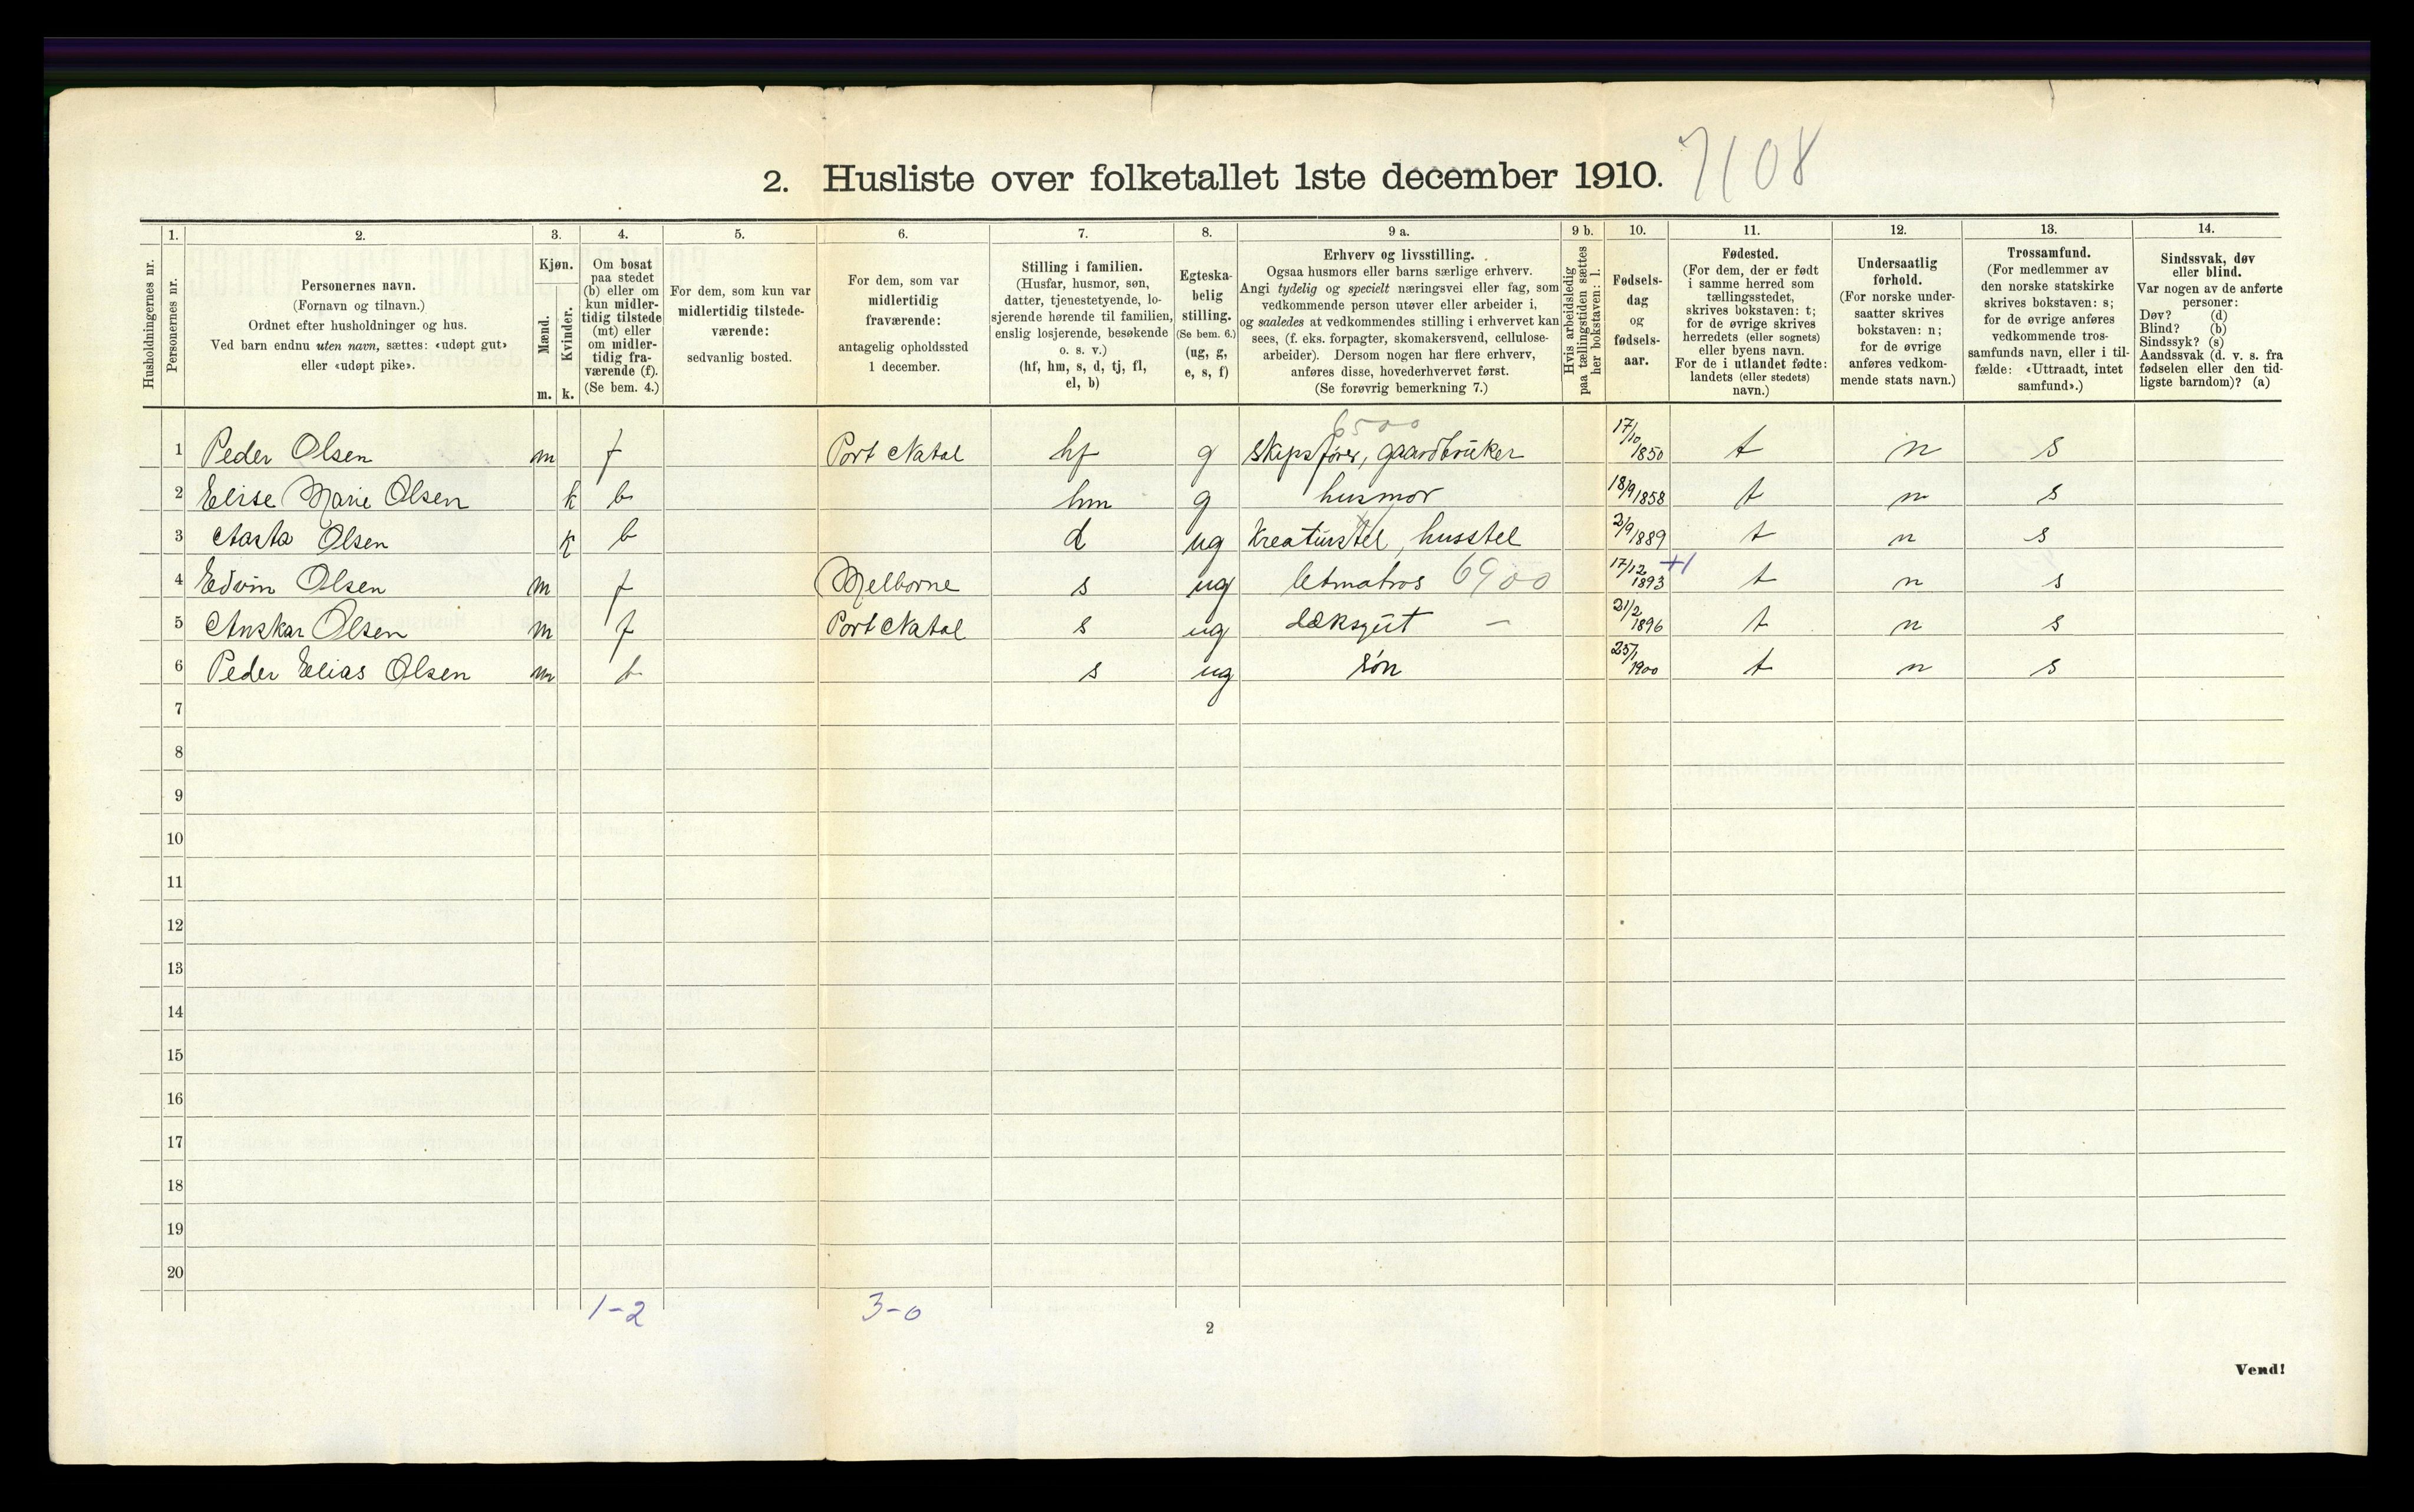 2. Husliste over folketallet 1ste december 1910. 7108
1. 2. 3. 4. 5. 6. 7. 8. 9 a. 9 b. 10. 11. 12. 13. 14.
Husholdningernes nr.
Personernes nr.
Personernes navn.
(Fornavn og tilnavn.)
Ordnet efter husholdninger og hus.
Ved barn endnu uten navn, sættes: «udøpt gut»
eller «udøpt pike».
Kjøn.
Mænd.
Kvinder.
m. k.
Om bosat
paa stedet
(b) eller om
kun midler-
tidig tilstede
(mt) eller
om midler-
tidig fra-
værende (f).
(Se bem. 4.)
For dem, som kun var
midlertidig tilstede-
værende:
sedvanlig bosted.
For dem, som var
midlertidig
fraværende:
antagelig opholdssted
1 december.
Stilling i familien.
(Husfar, husmor, søn,
datter, tjenestetyende, lo-
sjerende hørende til familien,
enslig losjerende, besøkende
o. s. v.)
(hf, hm, s, d, tj, fl,
el, b)
Egteska-
belig
stilling.
(Se bem. 6.)
(ug, g,
e, s, f)
Erhverv og livsstilling.
Ogsaa husmors eller barns særlige erhverv.
Angi tydelig og specielt næringsvei eller fag, som
vedkommende person utøver eller arbeider i,
og saaledes at vedkommendes stilling i erhvervet kan
sees, (f. eks. forpagter, skomakersvend, cellulose-
arbeider). Dersom nogen har flere erhverv,
anføres disse, hovederhvervet først.
(Se forøvrig bemerkning 7.)
Hvis arbeidsledig
paa tællingstiden sættes
her bokstaven: l.
Fødsels-
dag
og
fødsels-
aar.
Fødested.
(For dem, der er født
i samme herred som
tællingsstedet,
skrives bokstaven: t;
for de øvrige skrives
herredets (eller sognets)
eller byens navn.
For de i utlandet fødte:
landets (eller stedets)
navn.)
Undersaatlig
forhold.
(For norske under-
saatter skrives
bokstaven: n;
for de øvrige
anføres vedkom-
mende stats navn.)
Trossamfund.
(For medlemmer av
den norske statskirke
skrives bokstaven: s;
for de øvrige anføres
vedkommende tros-
samfunds navn, eller i til-
fælde: «Uttraadt, intet
samfund».)
Sindssvak, døv
eller blind.
Var nogen av de anførte
personer:
Døv? (d)
Blind? (b)
Sindssyk? (s)
Aandssvak (d. v. s. fra
fødselen eller den tid-
ligste barndom)? (a)
6500
1 Peder Olsen m f Port Natal hf g skipsfører, gaardbruker 17/10 1850 t n s
2 Elise Marie Olsen k b hm g husmor 18/9 1858 t n s
3 Aasta Olsen k b d ug Kreaturstel, husstel 2/9 1889 t n s
4 Edvin Olsen m f Melborne s ug letmatros 6900 17/12 1893 +1 t n s
5 Anskar Olsen m f Port Natal s ug dæksgut – 21/2 1896 t n s
6 Peder Elias Olsen m b s ug søn 25/1 1900 t n s
7
8
9
10
11
12
13
14
15
16
17
18
19
20
1-2 3-0
2
Vend!